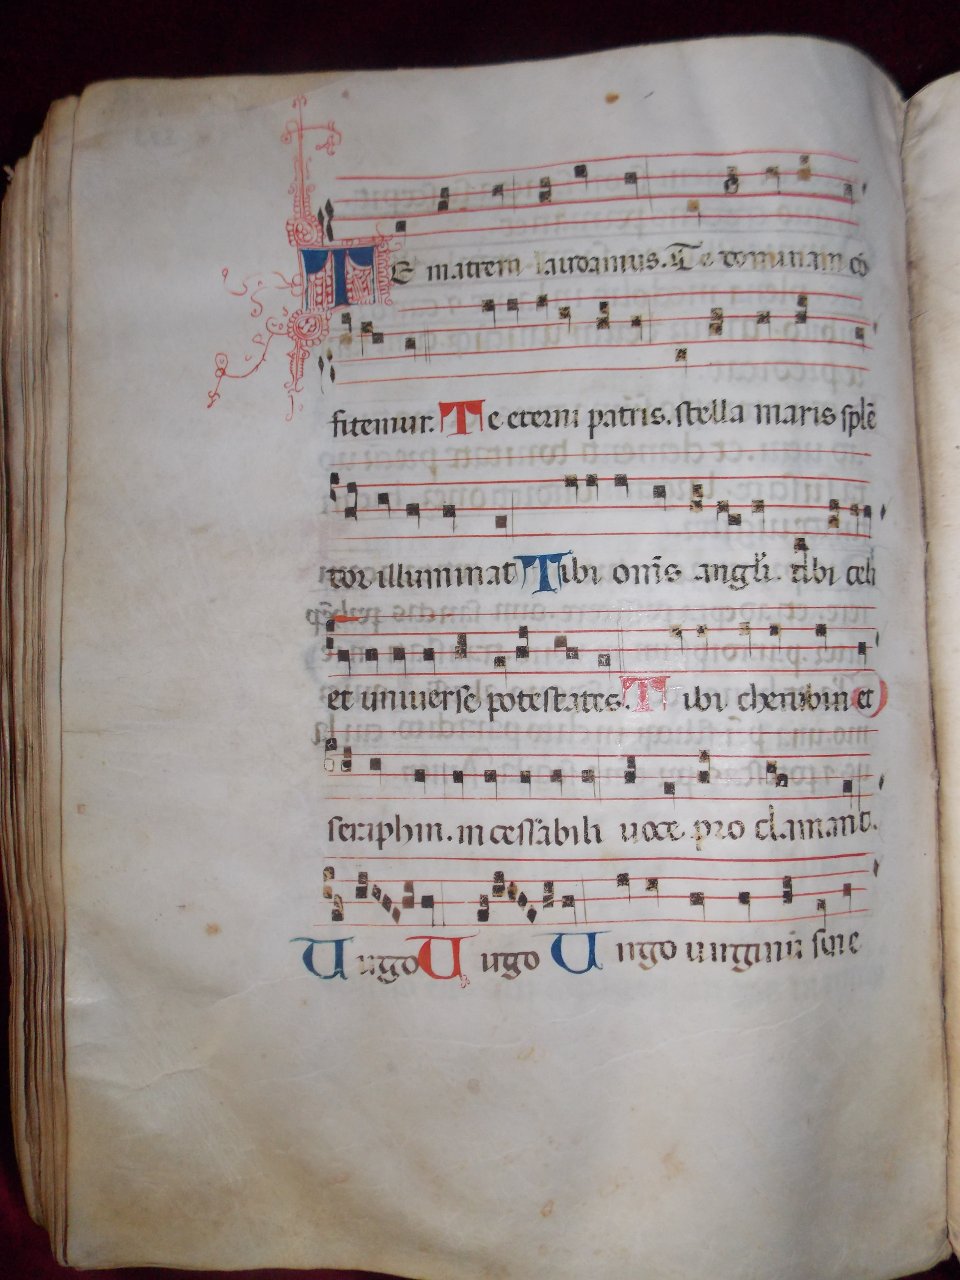 TE matrem laudamus. Te dominam cō
fitemur. Te eterni patris. stella maris splē
dor illuminat Tibi om̄s angli. tibi celi
et uniuerse potestates. Tibi cherubin et
seraphin. incessabili uoce proclamant.
Uirgo Uirgo Uirgo uirginū sine